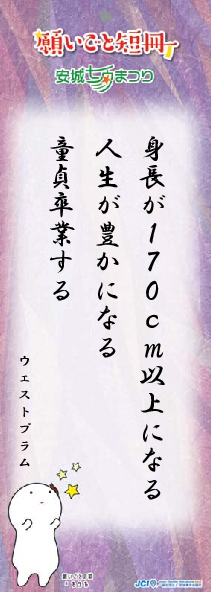 願いごと短冊
安城七夕まつり
身長が170cm以上になる
人生が豊かになる
童貞卒業する
ウェストブラム
願いごと短冊
JCI